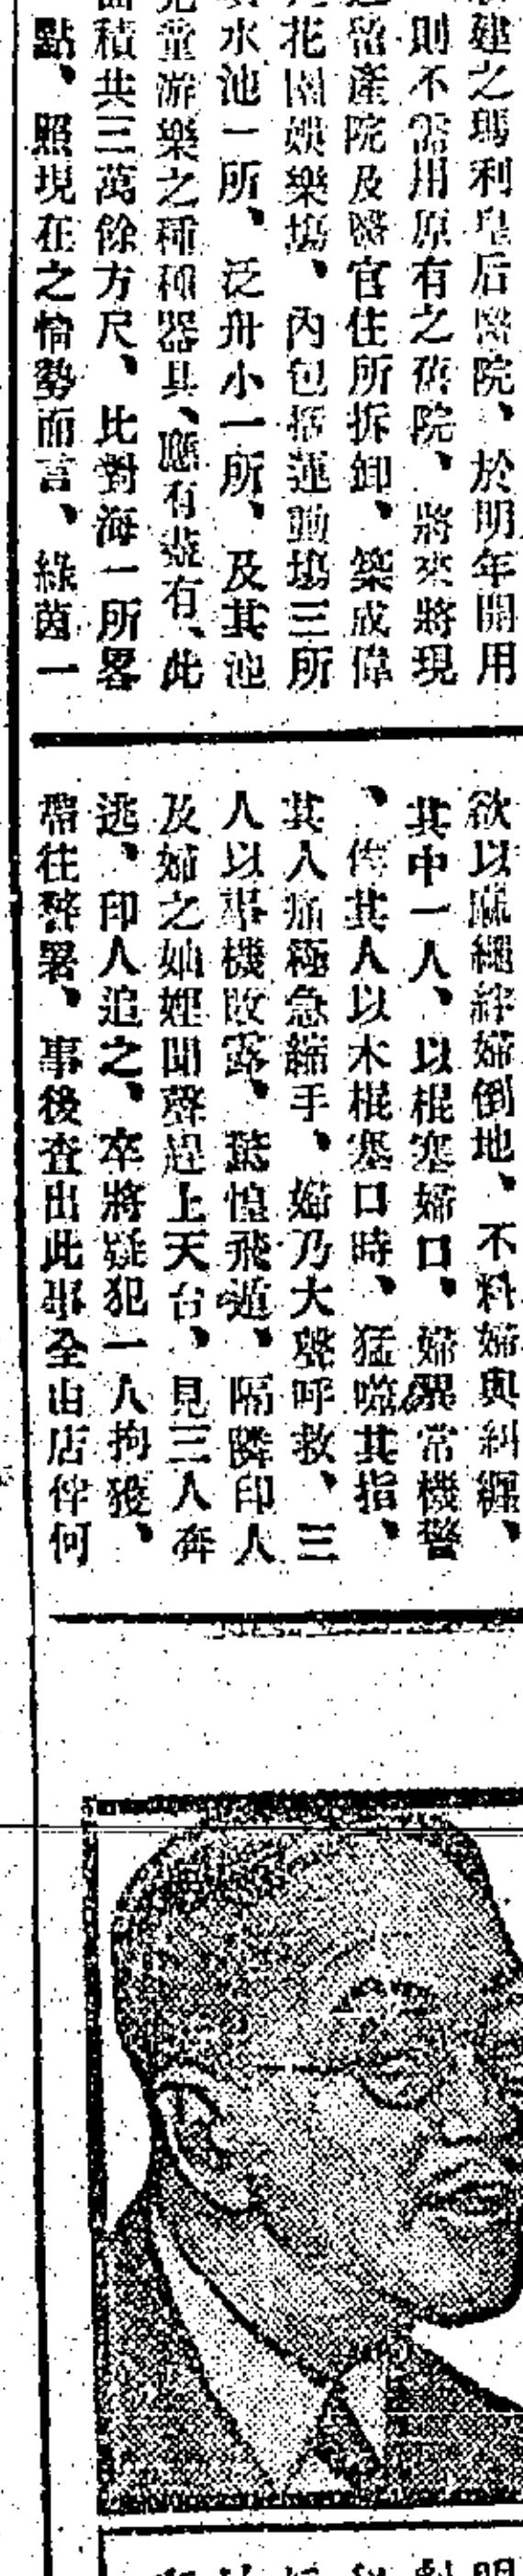 建之瑪利皇后醫院、於明年開用
則不需用原有之舊院、將來將現
留產院及醫官住所拆卸、築成偉
花園娛樂塲、內包括運動塲三所
水池一所、泛舟小一所、及其他
兒童游樂之種種器具、應有盡有、此
面積共三萬餘方尺、比對海一所畧
點、照現在之情勢而言、綠茵一
欲以麻繩絆婦倒地、不料婦與糾纏、
其中一人、以棍塞婦口、婦異常機警
、俟其人以木棍塞口時、猛噬其指、
其人痛極急縮手、婦乃大聲呼救、三
人以事機敗露、驚惶飛遁、隔隣印人
及婦之妯娌聞聲趕上天台、見三人奔
逃、印人追之、卒將疑犯一人拘獲、
帶往警署、事後查出此事全由店伴何